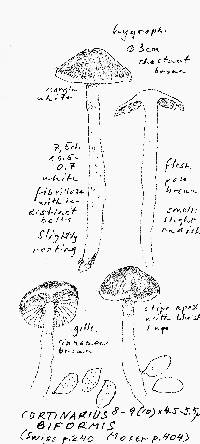 hygroph.
Ø 3cm
chestnut
brown
margin
white
7,5cl.
x 0.6-
0.7
white
fibrillose
with in-
distinct
belts
slightly
rooting
flesh
rose
brown
smell
slight
radish
stipe apex
with
gills
cinnamon
brown
8-9(10)x4.5-5.5µ
CORTINARIUS
BIFORMIS
(Swiss p.240 (Moser p.404)